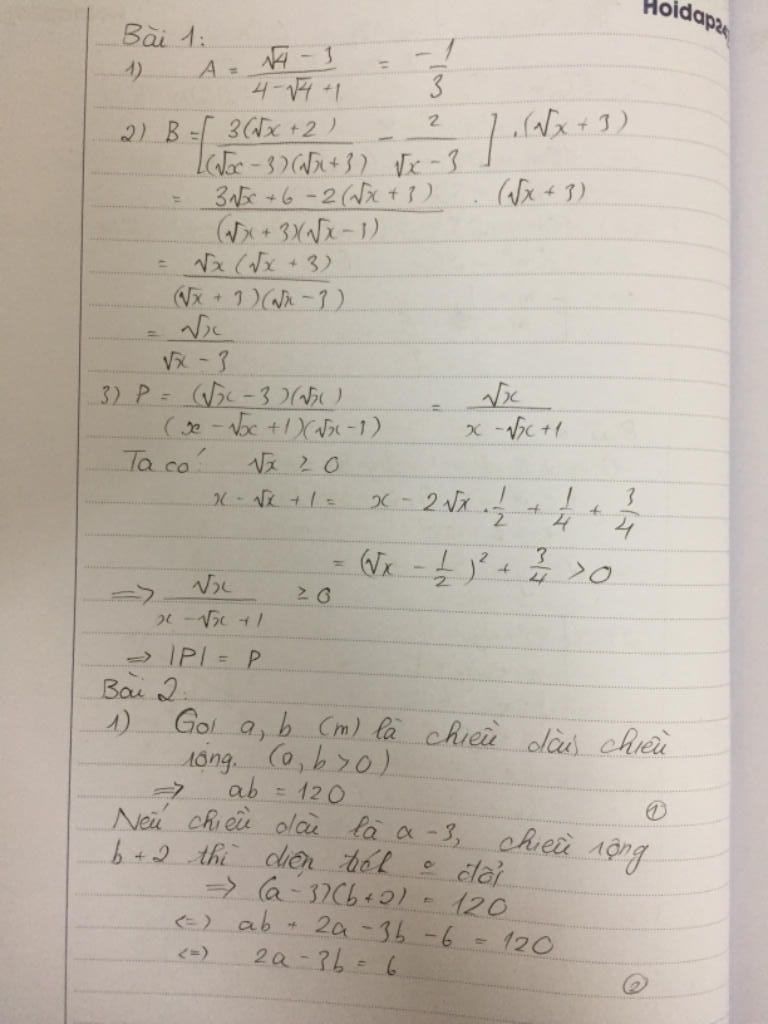 Hoidap24
Bài 1:
1) A = (√4 - 3)/(4 - √4 + 1) = -1/3
2) B = [3(√x + 2)/((√x - 3)(√x + 3)) - 2/(√x - 3)] . (√x + 3)
= (3√x + 6 - 2(√x + 3))/((√x + 3)(√x - 3)) . (√x + 3)
= √x(√x + 3)/((√x + 3)(√x - 3))
= √x/(√x - 3)
3) P = (√x - 3)(√x)/((x - √x + 1)(√x - 3)) = √x/(x - √x + 1)
Ta có: √x ≥ 0
x - √x + 1 = x - 2√x . 1/2 + 1/4 + 3/4
= (√x - 1/2)² + 3/4 > 0
=> √x/(x - √x + 1) ≥ 0
=> |P| = P
Bài 2:
1) Gọi a, b (m) là chiều dài, chiều
rộng. (a, b > 0)
=> ab = 120 ①
Nếu chiều dài là a - 3, chiều rộng
b + 2 thì diện tích o đổi
=> (a - 3)(b + 2) = 120
<=> ab + 2a - 3b - 6 = 120
<=> 2a - 3b = 6 ②